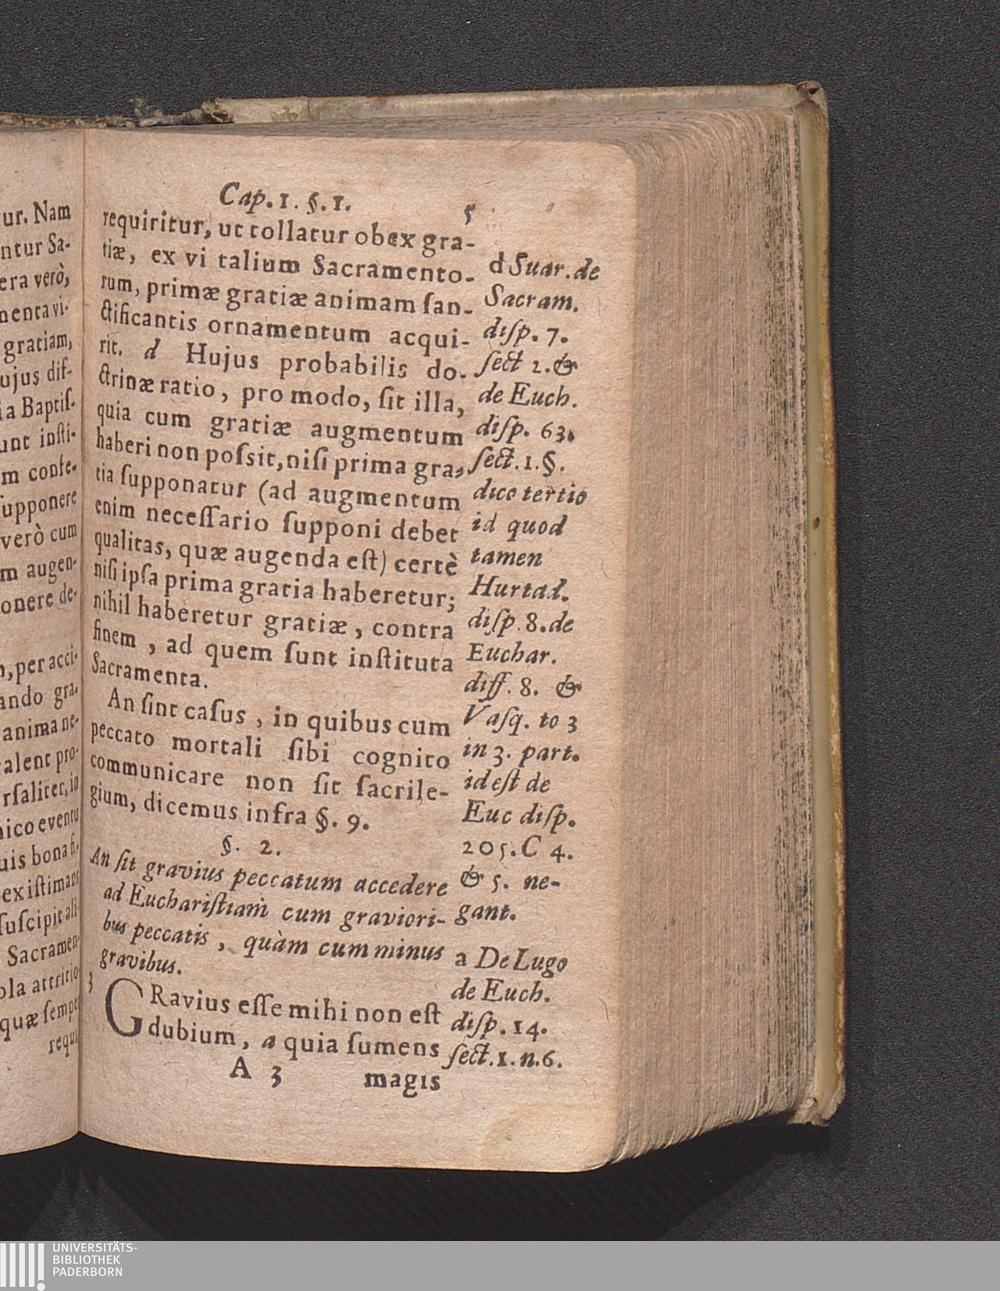 ur. Nam
ntur Sa-
era verò,
menta vi-
gratiam,
ujus dif-
ia Baptiſ-
unt inſti-
m conſe-
ſupponere
verò cum
m augen-
onere de-
n, per acci-
ando gra-
anima ne-
valent pro-
rſaliter, in
nico eventu
uis bona fi-
exiſtimans
ſuſcipit ali
Sacramen-
ola attritio
quæ ſempe
requi
Cap. 1. §. 1. 5
requiritur, ut tollatur obex gra-
tiæ, ex vi talium Sacramento-
rum, primæ gratiæ animam ſan-
ctificantis ornamentum acqui-
rit. d Hujus probabilis do-
ctrinæ ratio, pro modo, ſit illa,
quia cum gratiæ augmentum
haberi non poſsit, niſi prima gra-
tia ſupponatur (ad augmentum
enim neceſſario ſupponi debet
qualitas, quæ augenda eſt) certè
niſi ipſa prima gratia haberetur;
nihil haberetur gratiæ, contra
finem, ad quem ſunt inſtituta
Sacramenta.
An ſint caſus, in quibus cum
peccato mortali ſibi cognito
communicare non ſit ſacrile-
gium, dicemus infra §. 9.
§. 2.
An ſit gravius peccatum accedere
ad Euchariſtiam cum graviori-
bus peccatis, quàm cum minus
gravibus.
3
GRavius eſſe mihi non eſt
dubium, a quia ſumens
A 3 magis
d Suar. de
Sacram.
diſp. 7.
ſect 2. &
de Euch.
diſp. 63.
ſect. 1. §.
dico tertio
id quod
tamen
Hurtad.
diſp. 8. de
Euchar.
diff. 8. &
Vaſq. to 3
in 3. part.
id eſt de
Euc diſp.
205. C 4.
& 5. ne-
gant.
a De Lugo
de Euch.
diſp. 14.
ſect. 1. n. 6.
UNIVERSITÄTS-
BIBLIOTHEK
PADERBORN